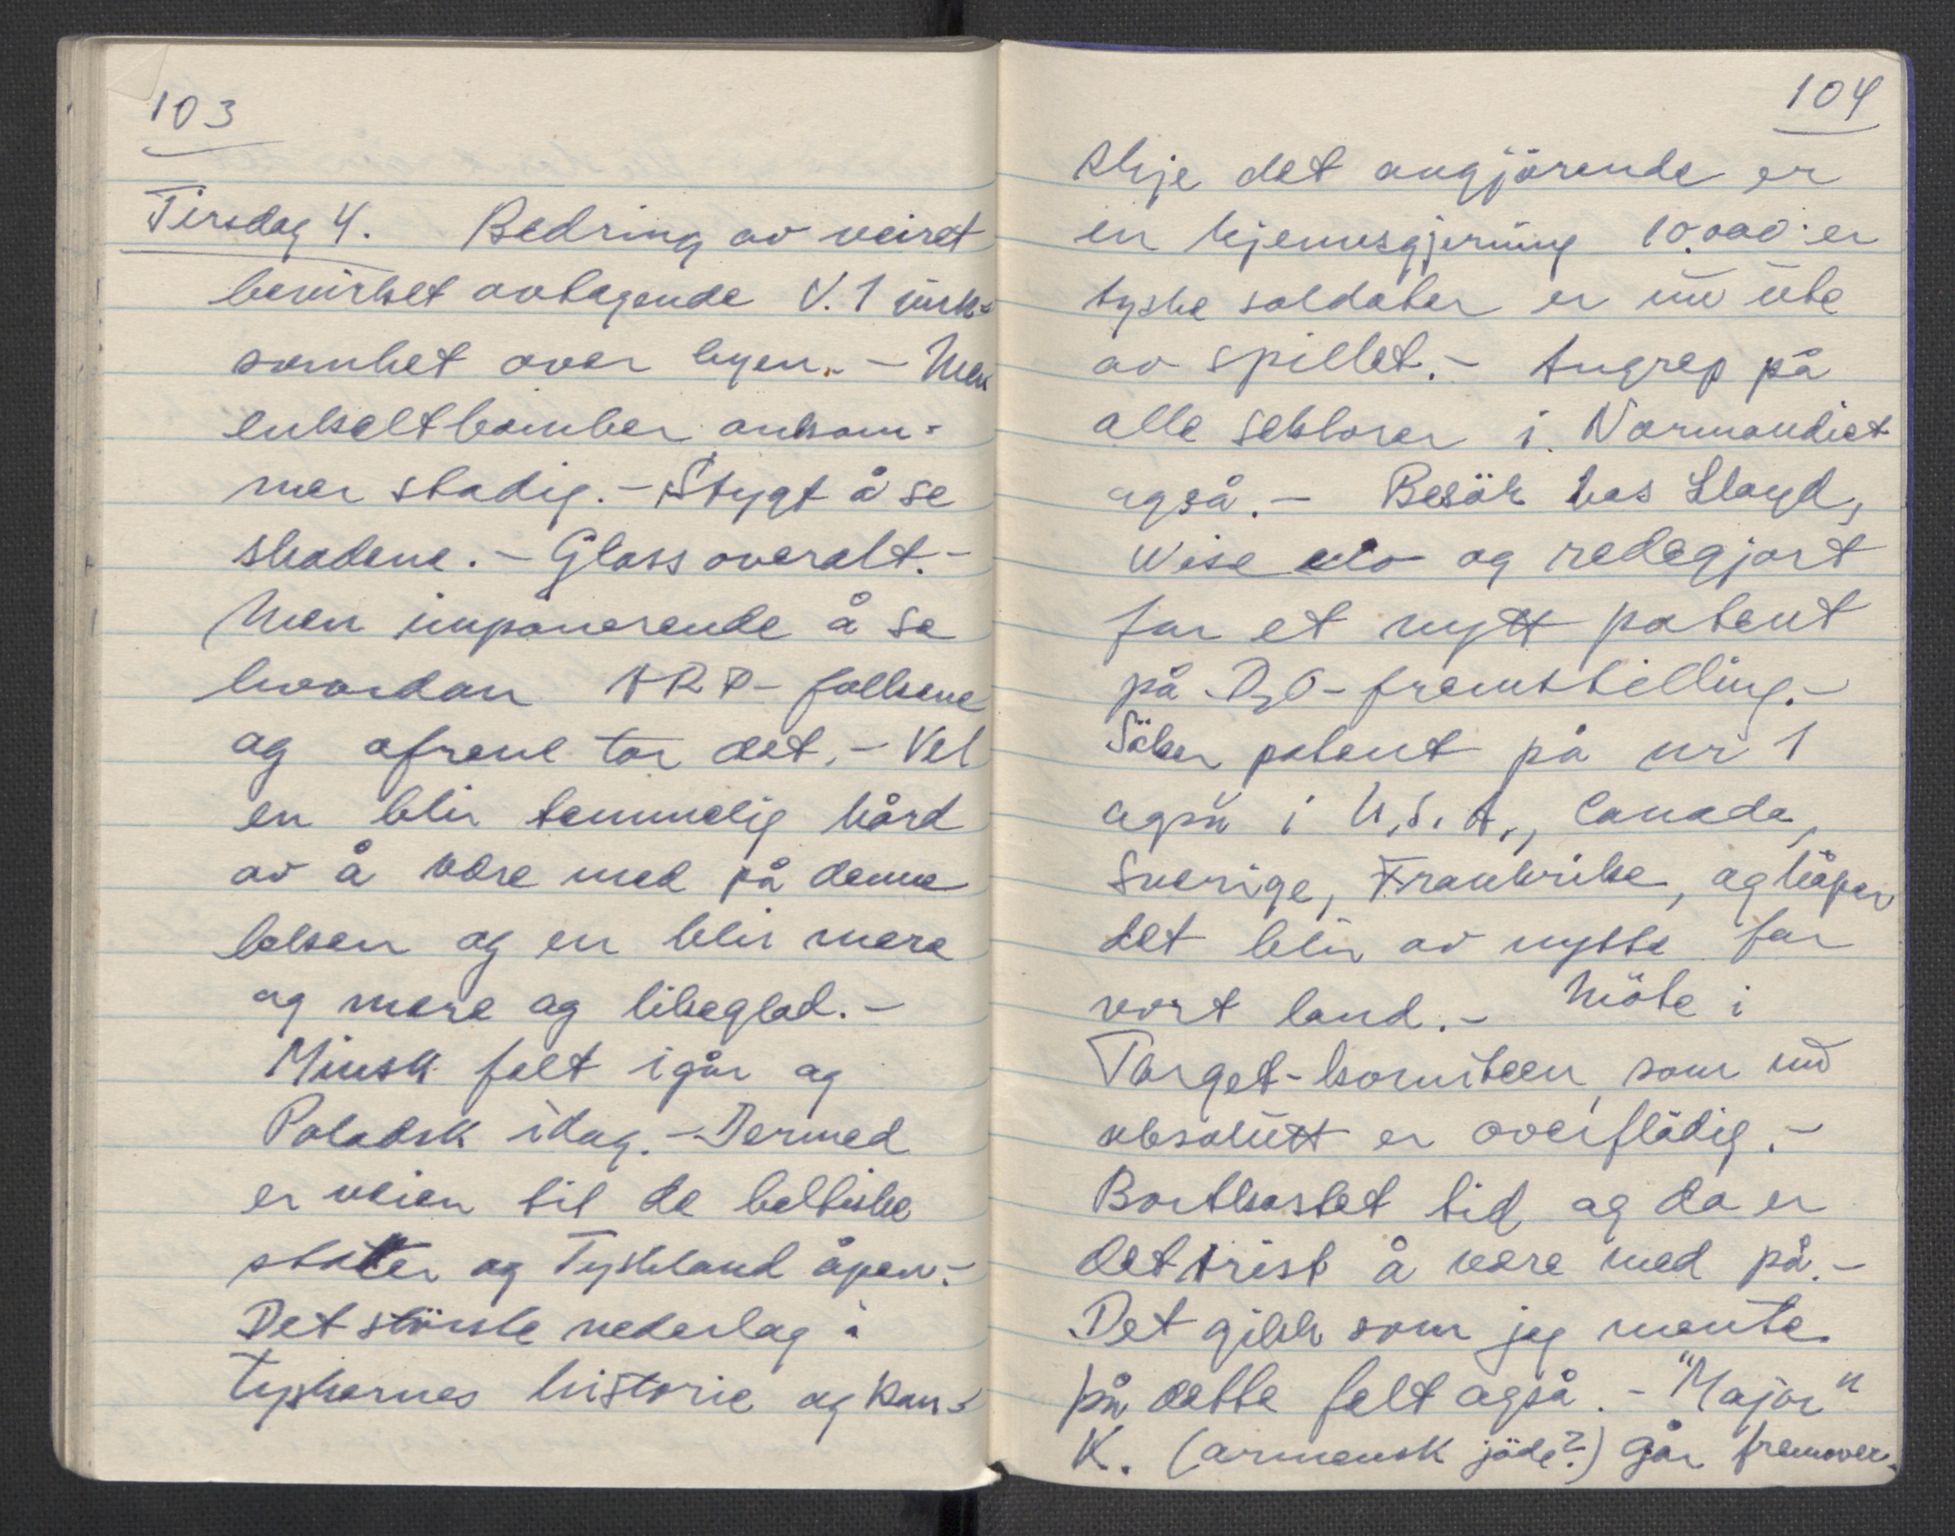 103
Tirsdag 4. Bedring av veiret
bevirket avtagende V.1 virk-
somhet over byen. - Men
enkeltbomber ankom-
mer stadig. - Stygt å se
skadene. - Glass overalt. -
Men imponerende å se
hvordan ARP-folkene
og ofrene tar det. - Vel
en blir temmelig hård
av å være med på denne
leken og en blir mere
og mere og likeglad. -
Minsk falt igår og
Polodsk idag. - Dermed
er veien til de baltiske
stater og Tyskland åpen. -
Det største nederlag i
tyskernes historie og kan-
104
skje det avgjörende er
en kjensgjerning 10.000er
tyske soldater er nu ute
av spillet. - Angrep på
alle sektorer i Normandiet
også. - Besök hos Lloyd,
Wise og redegjort
for et nytt patent
på D2O-fremstilling. -
Söker patent på nr 1
også i U.S.A., Canada,
Sverige, Frankrike, og håper
det blir av nytte for
vort land. - Möte i
Target-komiteen, som nu
absolutt er overflödig. -
Bortkastet tid og da er
det trist å være med på. -
Det gikk som jeg mente
på dette felt også. - "Major"
K. (armensk jöde?) går fremover.